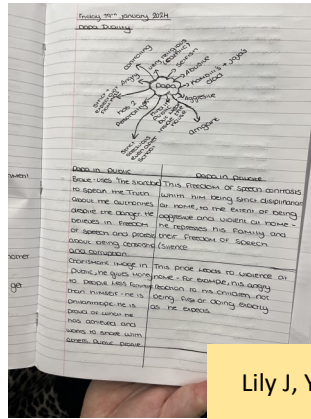 Friday 19th January 2024
Papa Duality
very religious
(catholic)
sexism
Abusive
Kambili's + Jaja's
dad
Aggressive
arrogant
Papa
Angry
has 2
Personalities
Papa in Public
Papa in private
Brave - uses 'The Standard'
to speak the Truth
about the authorities
despite the danger. He
believes in freedom
of speech and
about being censored
and corruption.
This freedom of speech contrasts
with him being strict disciplinarian
at home, to the extent of being
aggressive and violent at home -
he represses his family and
their freedom of speech
(silence
Charismatic image in
Public, he gives money
to people less fortunate
than himself - he is
philanthropic. he is
proud of what he
has achieved and
wants to share with
others. Public pride.
This pride leads to violence at
home - for example, his angry
reaction to his children not
being first or doing exactly
as he expects.
Lily J, Y